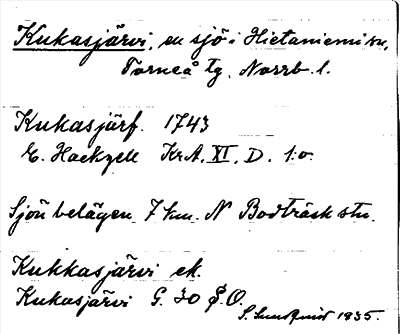 Kukasjärvi, en sjö i Hietaniemi sn,
Torneå tg, Norrb. l.
Kukasjärf. 1743
E. Hackzell KrA. XI. D. 1:o.
Sjön belägen 7 km. N Bodträsk stn.
Kukkasjärvi ek.
Kukasjärvi G. 30 Ö.
S. Sundqvist 1935.